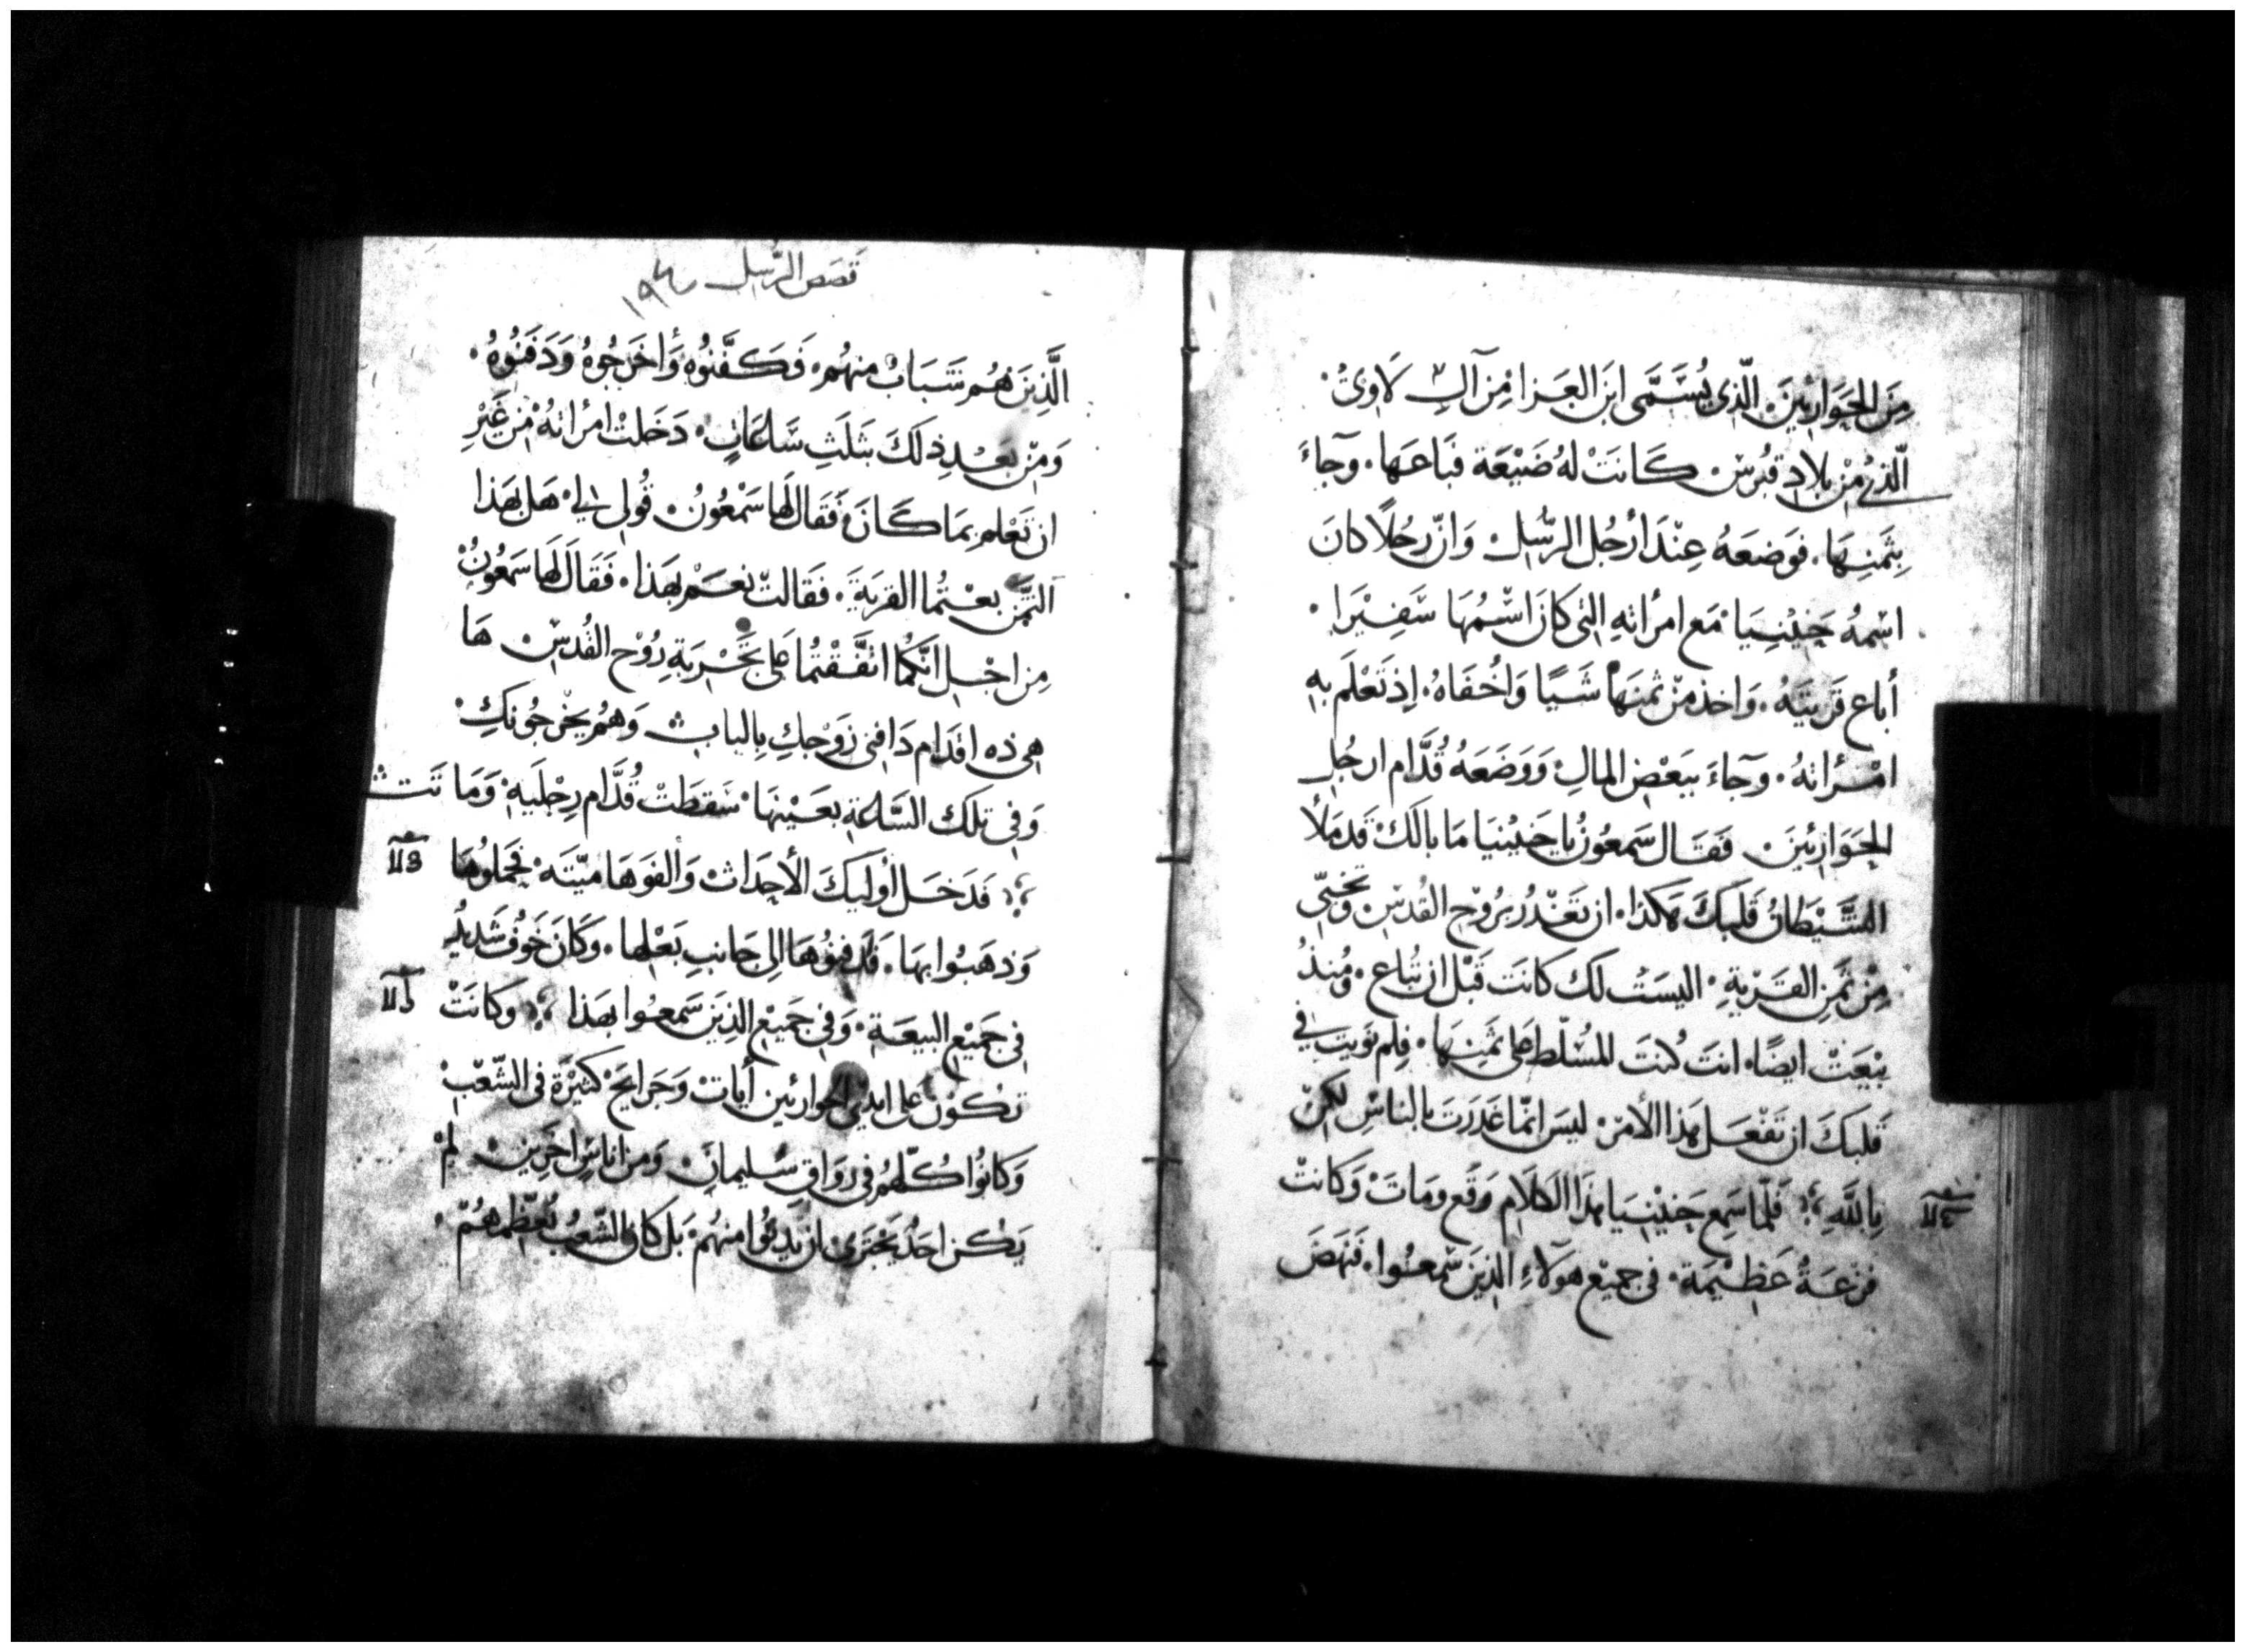 مِنَ الحَوَارِيّينَ. الّذِى يُسَمَّى ابنَ العَزا مِنْ آلِ لَاوِىْ.
الّذى مِنْ بلادِ قبُرسْ. كَانَتْ لهُ ضَيْعَة فبَاعَها. وجآءَ
بِثمَنِهَا. فوَضعَهُ عِنْدَ ارْجُل الرّسُلْ وَانّ رجُلًا كانَ
اسْمهُ حَنِيْنِيَا مَع امرُاتهِ التى كانَ اسْمُهَا سَفِيْرَا.
أباع قريَتَهُ. وَاخذ مِنْ ثمنَهَا شَيًا وَاخْفَاهُ. اِذ تَعْلَم بهِ
امْرأتهُ. وجآءَ ببَعْضِ المالِ وَوَضَعَهُ قُدَّام ارجُلِ
الحَوَارِيّينَ. فَقَال سَمعُونُ يا حَنِيْنيَا مَا بالكْ قَد مَلأ
الشَّيْطَانُ قَلبَكَ هَكذا. ان تغدُر برُوْحِ القدُسِ وَتخبّى
مِنْ ثمَنِ القَرْيةِ. اليسَتْ لكَ كانَت قَبْل ان تُباع. ومُنذُ
بيْعَتْ ايضًا. انتَ كُنتَ المُسَلّط عَلى ثمَنِهَا. فلِم نوَيت فى
قَلبَكَ ان تَفْعَل هَذا الأمرْ. ليسَ انمّا غَدَرتَ بالناسِ لكِنْ
بِاللهِ فَلمّا سَمِع حَنِيْنِيَا هَذا الكلَام وَقَع ومَاتَ. وَكانتْ
فزْعَةُ عَظِيْمَة. فى جميْع هوَلآءِ الذينَ سَمعُوا. فَنَهَضَ
قصَصِ الرّسُل ١٩٤
الَّذِينَ هُم شَبَابُ منهُم. فَكَفَّنُوه وَأخَرجُوهُ وَدَفنوُهُ.
وَمِنْ بَعْدِ ذلكَ بثلَثِ سَاعَاتٍ. دَخَلتْ امرُاتهُ مْن غَيْرِ
ان تعْلم بمَا كَانَ. فَقَال لهَا سَمْعُونُ. قُولى لى هَل بهَذا
الثمَن بعْتُما القريَةَ. فقَالتْ نعَمْ بهَذا. فَقَالَ لهَا سَمعُونُ
مِن اجْل انَّكُما اتفَّقْتُما عَلى تجْربَةِ رُوْح القُدسْ. هَا
هى ذه اقدَام دَافنى زوْجكِ بِالبابْ وَهُم يخْرجُونكِ
وَفى تلكَ السَّاعَةِ بعَيْنهَا. سَقطَتْ قُدَّام رِجْليَهِ وَمَاتَت
فَدَخَل أوليَكَ الأحِدَاث وَالفوهَا ميّتَه. فحَملوُهَا
وَذهَبوُا بهَا. فَدفنوُهَا الى جَانبِ بَعْلِها. وكَانَ خَوفُ شَديدُ
فى جَميْع البيعَة. وَفى جَميْعِ الذِينَ سَمعوُا بهَذا وَكانَتْ
تكوْن عَلى ايدىِ الحوارئين أياتْ وَجَرايحَ كثيْرَة فى الشّعْبْ
وَكانوُا كُلّهم فى روَاقِ سُليمانَ. وَمن اناسِ اخَرِين. لمْ
يَكن احَدُ يَجتَرى ان يَدنوُا منهُم. بَل كانَ الشّعبُ يُعظّمهُم.